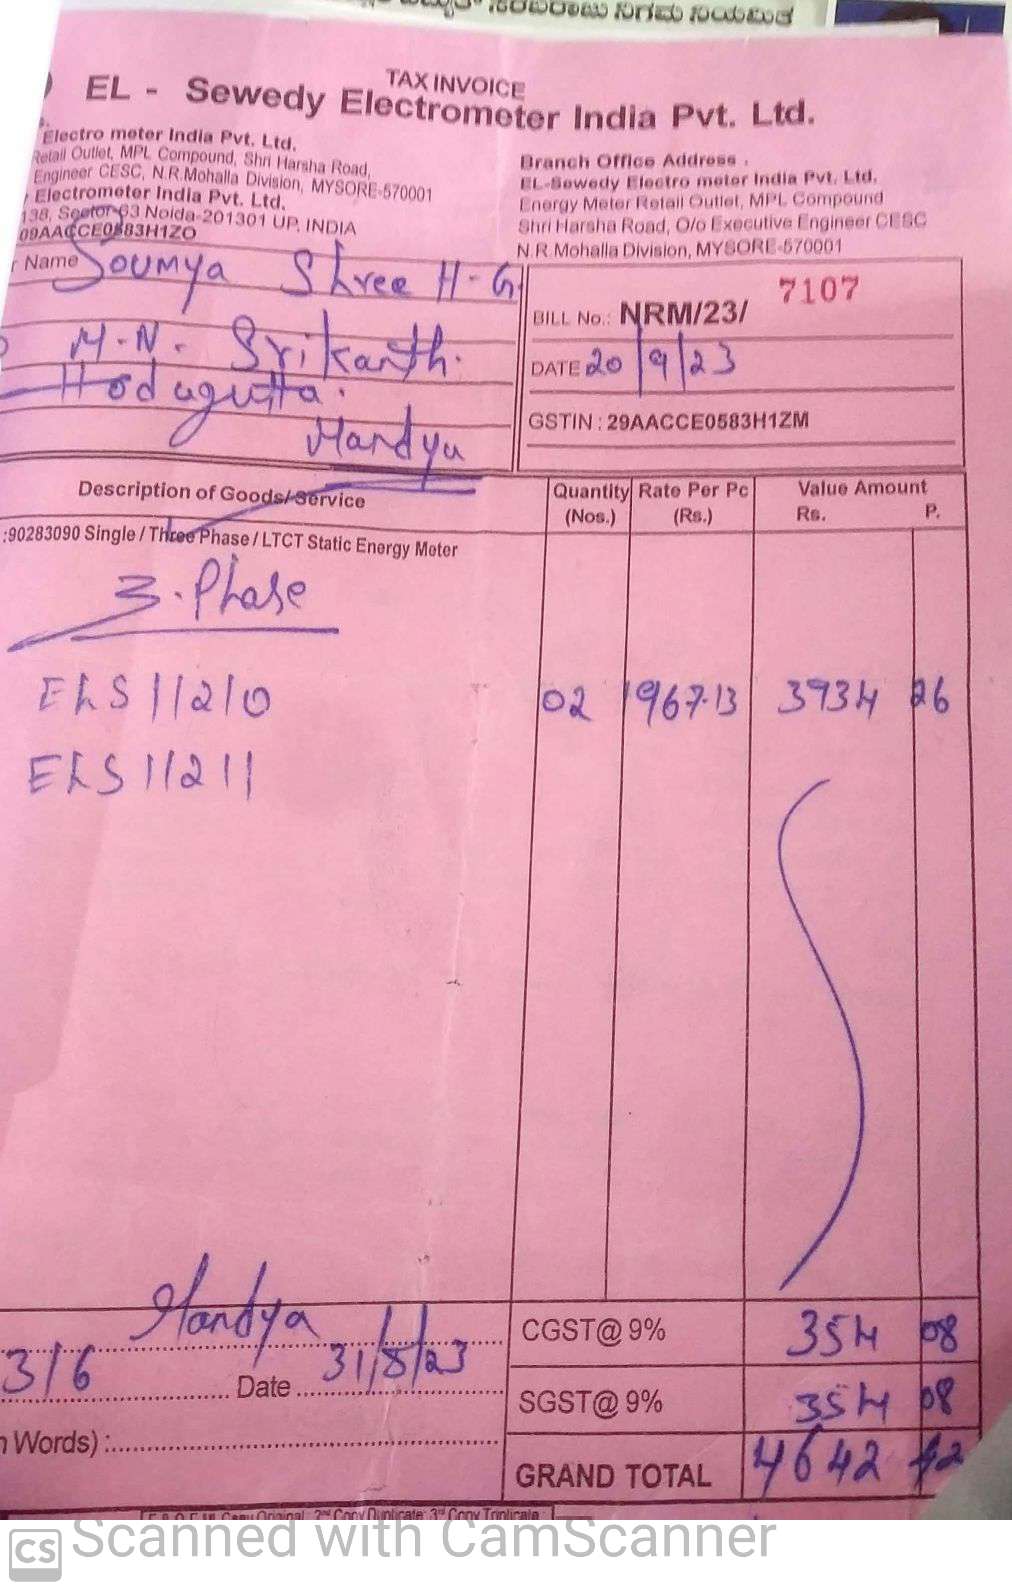 ನಿಗಮ ನಿಯಮಿತ
TAX INVOICE
EL - Sewedy Electrometer India Pvt. Ltd.
Electro meter India Pvt. Ltd.
Retail Outlet, MPL Compound, Shri Harsha Road,
Engineer CESC, N.R.Mohalla Division, MYSORE-570001
Electrometer India Pvt. Ltd.
138, Sector 63 Noida-201301 UP, INDIA
09AACCE0583H1ZO
Branch Office Address .
EL-Sewedy Electro meter India Pvt. Ltd.
Energy Meter Retail Outlet, MPL Compound
Shri Harsha Road, O/o Executive Engineer CESC
N.R.Mohalla Division, MYSORE-570001
r Name Soumya Shree H-G
M.N. Srikanth.
Hodagutta.
Mandya
BILL No.: NRM/23/ 7107
DATE 20/9/23
GSTIN : 29AACCE0583H1ZM
Description of Goods/Service Quantity (Nos.) Rate Per Pc (Rs.) Value Amount Rs. P.
:90283090 Single / Three Phase / LTCT Static Energy Meter
3-Phase
ELS11210 02 1967.13 3934 26
ELS11211
Mandya
CGST@ 9% 354 08
316 Date 31/8/23
SGST@ 9% 354 08
n Words) :
GRAND TOTAL 4642 42
Copy Original 2nd Copy Duplicate 3rd Copy Triplicate
CS Scanned with CamScanner